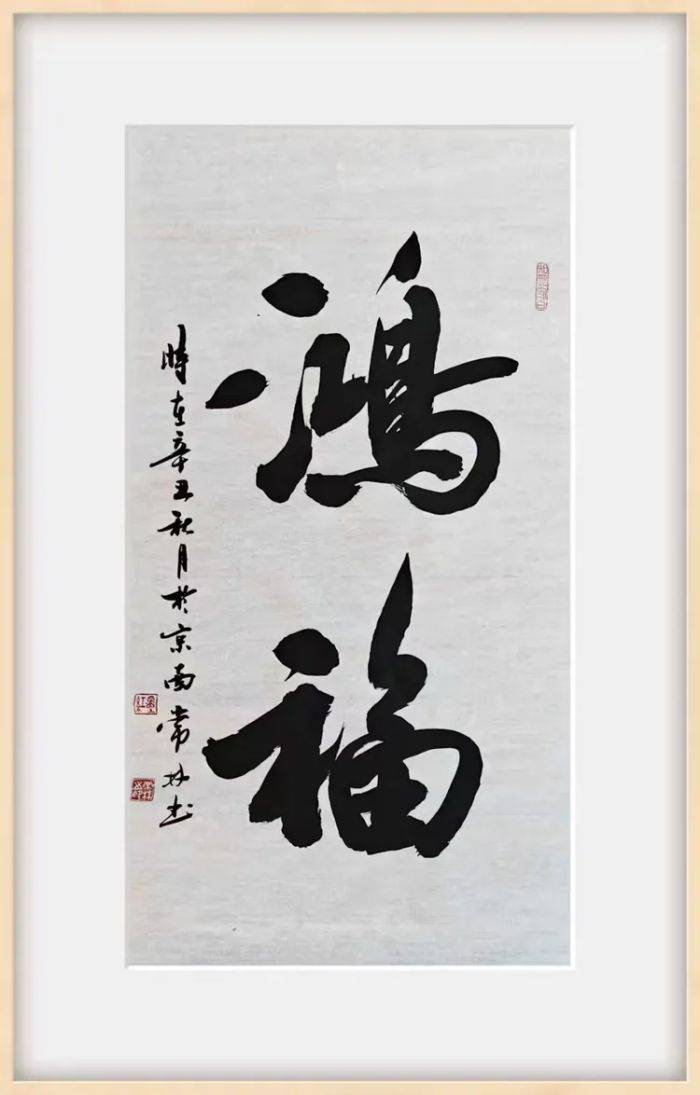 鸿福
時在辛丑秋月於京南常林书